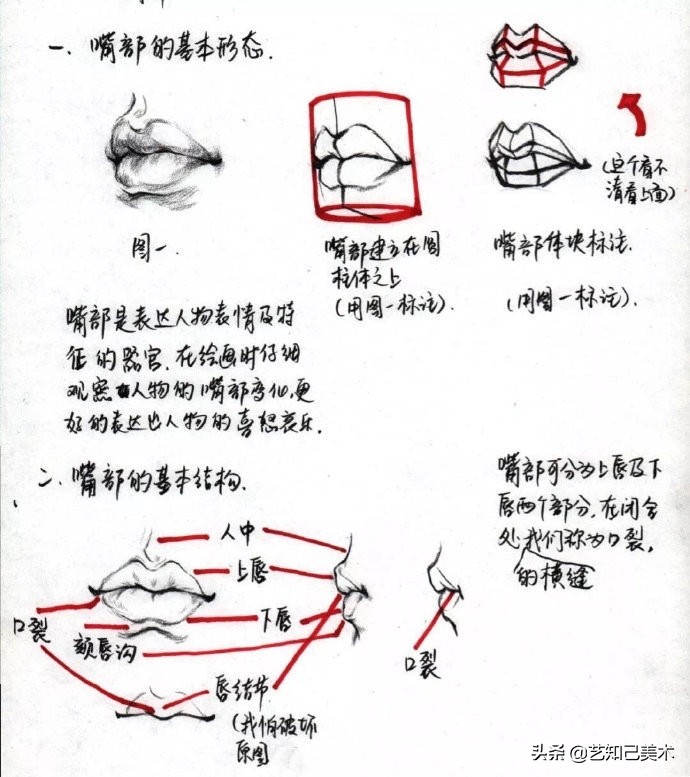 一、嘴部的基本形态.
(这个看不
清看上面)
图一.
嘴部建立在圆
柱体之上
(用图一标注).
嘴部体块标注.
(用图一标注).
嘴部是表达人物表情及特
征的器官.在绘画时仔细
观察人物的嘴部变化,更
好的表达出人物的喜怒哀乐.
二、嘴部的基本结构.
嘴部可分为上唇及下
唇两个部分,在闭合
处我们称为口裂,
的横缝
人中
上唇
口裂
下唇
颏唇沟
口裂
唇结节
(我怕破坏
原图
头条@艺知己美术